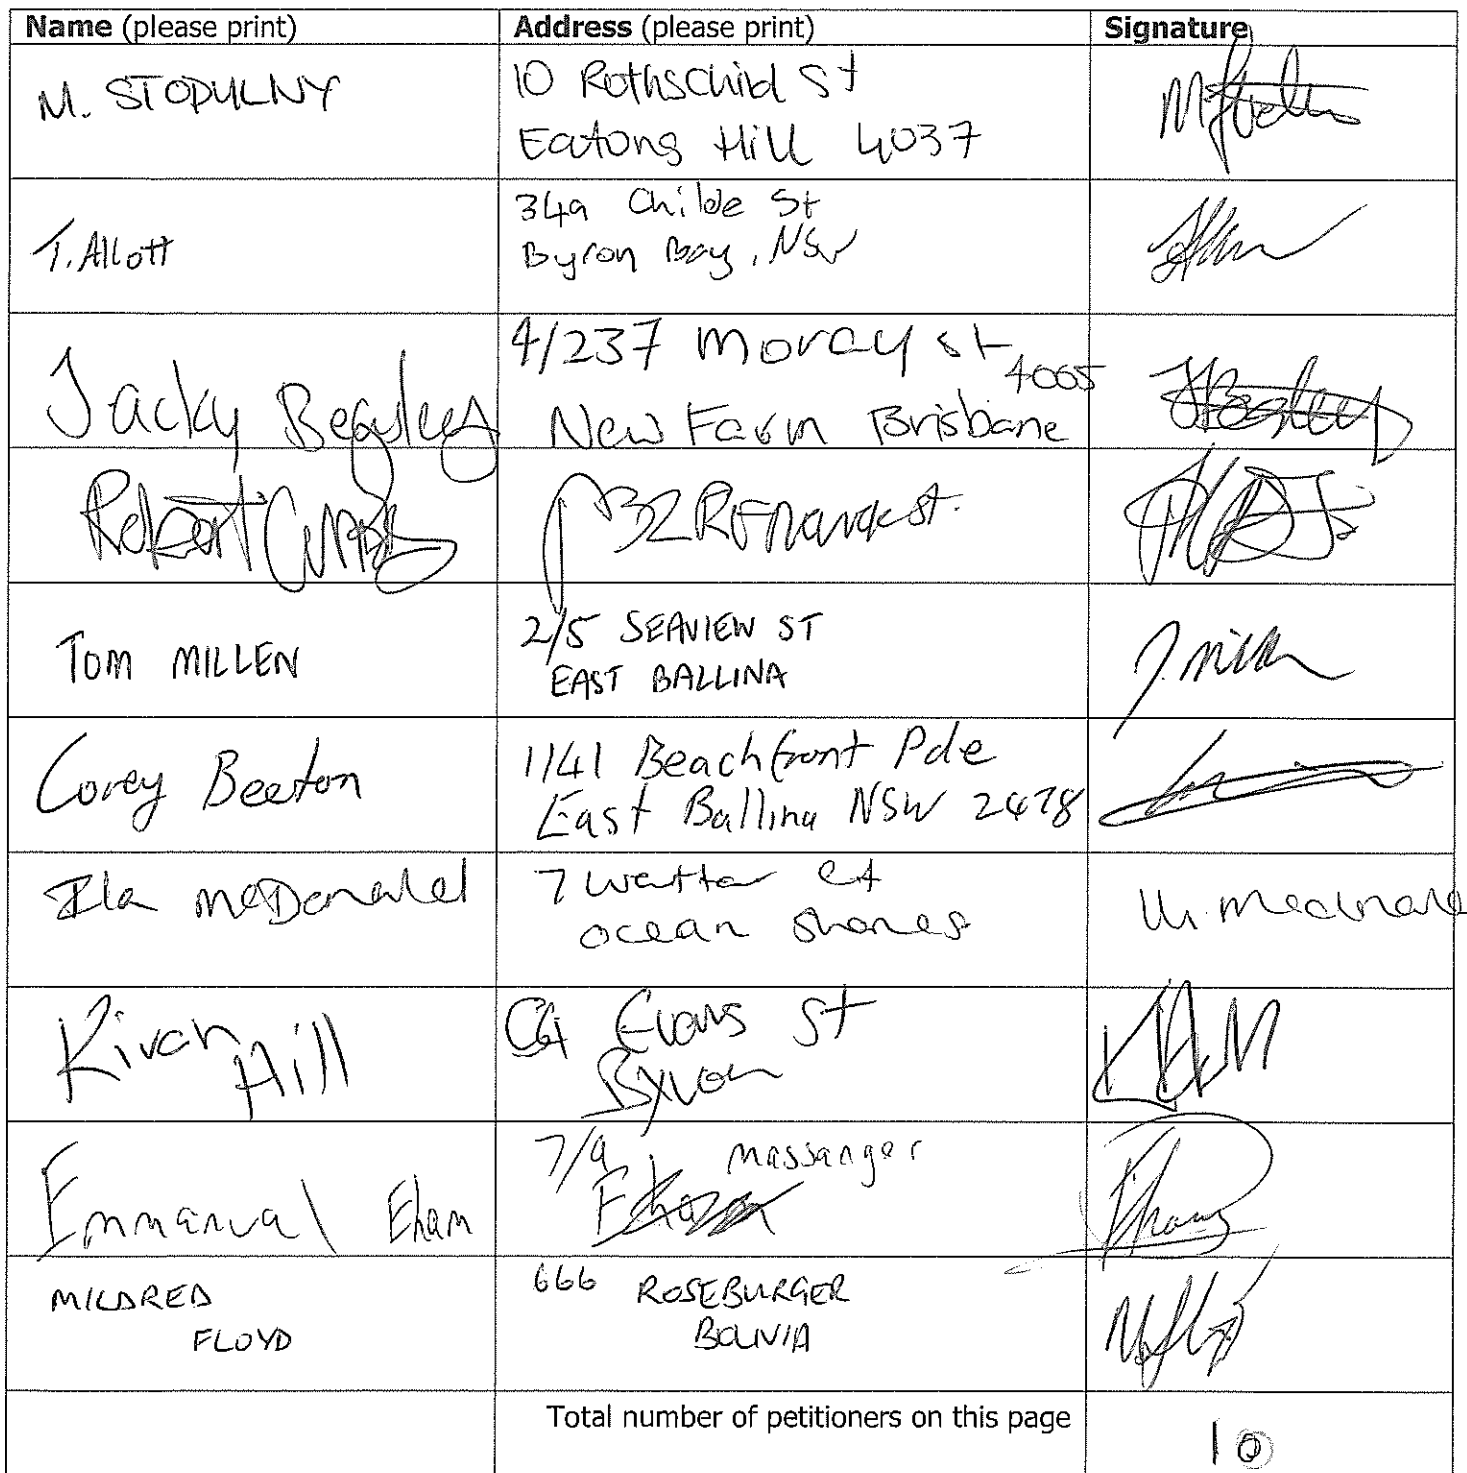 Name (please print) Address (please print) Signature
M. STOPULNY 10 Rothschild St
Eatons Hill 4037
T. Allott 34a Childe St
Byron Bay, NSW
Jacky Begyley 4/237 Moray st 4005
New Farm Brisbane
Robert 32 st.
TOM MILLEN 2/5 SEAVIEW ST
EAST BALLINA
T. Millen
Corey Beeton 1/41 Beachfront Pde
East Ballina NSW 2478
Ila McDonald 7 ct
ocean shores
Kirah Hill Evans St
Byron
Emmanual Eham 7/9 massanger
MILDRED 666 ROSEBURGER
FLOYD BOLIVIA
Total number of petitioners on this page 10